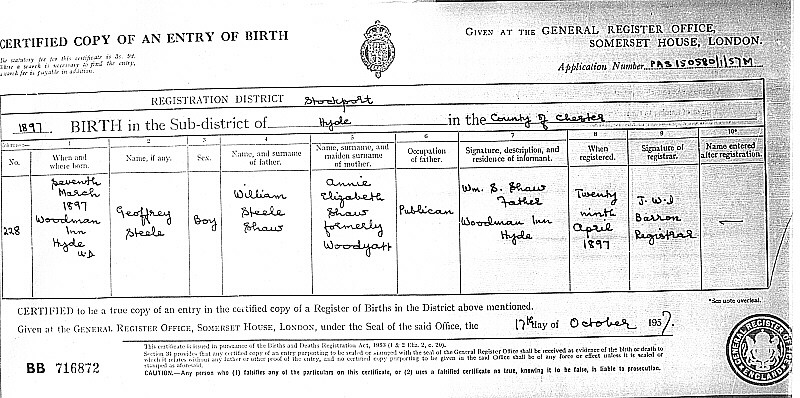 CERTIFIED COPY OF AN ENTRY OF BIRTH
GIVEN AT THE GENERAL REGISTER OFFICE,
SOMERSET HOUSE, LONDON.
The statutory fee for this certificate is 3s. 9d.
Where a search is necessary to find the entry,
a search fee is payable in addition.
Application Number PAS 150580/1/57M
REGISTRATION DISTRICT Stockport
1897. BIRTH in the Sub-district of Hyde in the County of Chester
1 2 3 4 5 6 7 8 9 10*
No. When and where born. Name, if any. Sex. Name, and surname of father. Name, surname, and maiden surname of mother. Occupation of father. Signature, description, and residence of informant. When registered. Signature of registrar. Name entered after registration.
228
Seventh
March
1897
Woodman
Inn
Hyde
U.D
Geoffrey
Steele
Boy
William
Steele
Shaw
Annie
Elizabeth
Shaw
formerly
Woodyatt
Publican
Wm. S. Shaw
Father
Woodman Inn
Hyde
Twenty
ninth
April
1897
J. W. J
Barron
Registrar
*See note overleaf.
CERTIFIED to be a true copy of an entry in the certified copy of a Register of Births in the District above mentioned.
Given at the GENERAL REGISTER OFFICE, SOMERSET HOUSE, LONDON, under the Seal of the said Office, the 17th day of October 1957.
This certificate is issued in pursuance of the Births and Deaths Registration Act, 1953 (1 & 2 Eliz. 2, c. 20).
Section 34 provides that any certified copy of an entry purporting to be sealed or stamped with the seal of the General Register Office shall be received as evidence of the birth or death to
which it relates without any further or other proof of the entry, and no certified copy purporting to be given in the said Office shall be of any force or effect unless it is sealed or
stamped as aforesaid.
CAUTION.—Any person who (1) falsifies any of the particulars on this certificate, or (2) uses a falsified certificate as true, knowing it to be false, is liable to prosecution.
BB 716872
GENERAL REGISTER OFFICE
ENGLAND